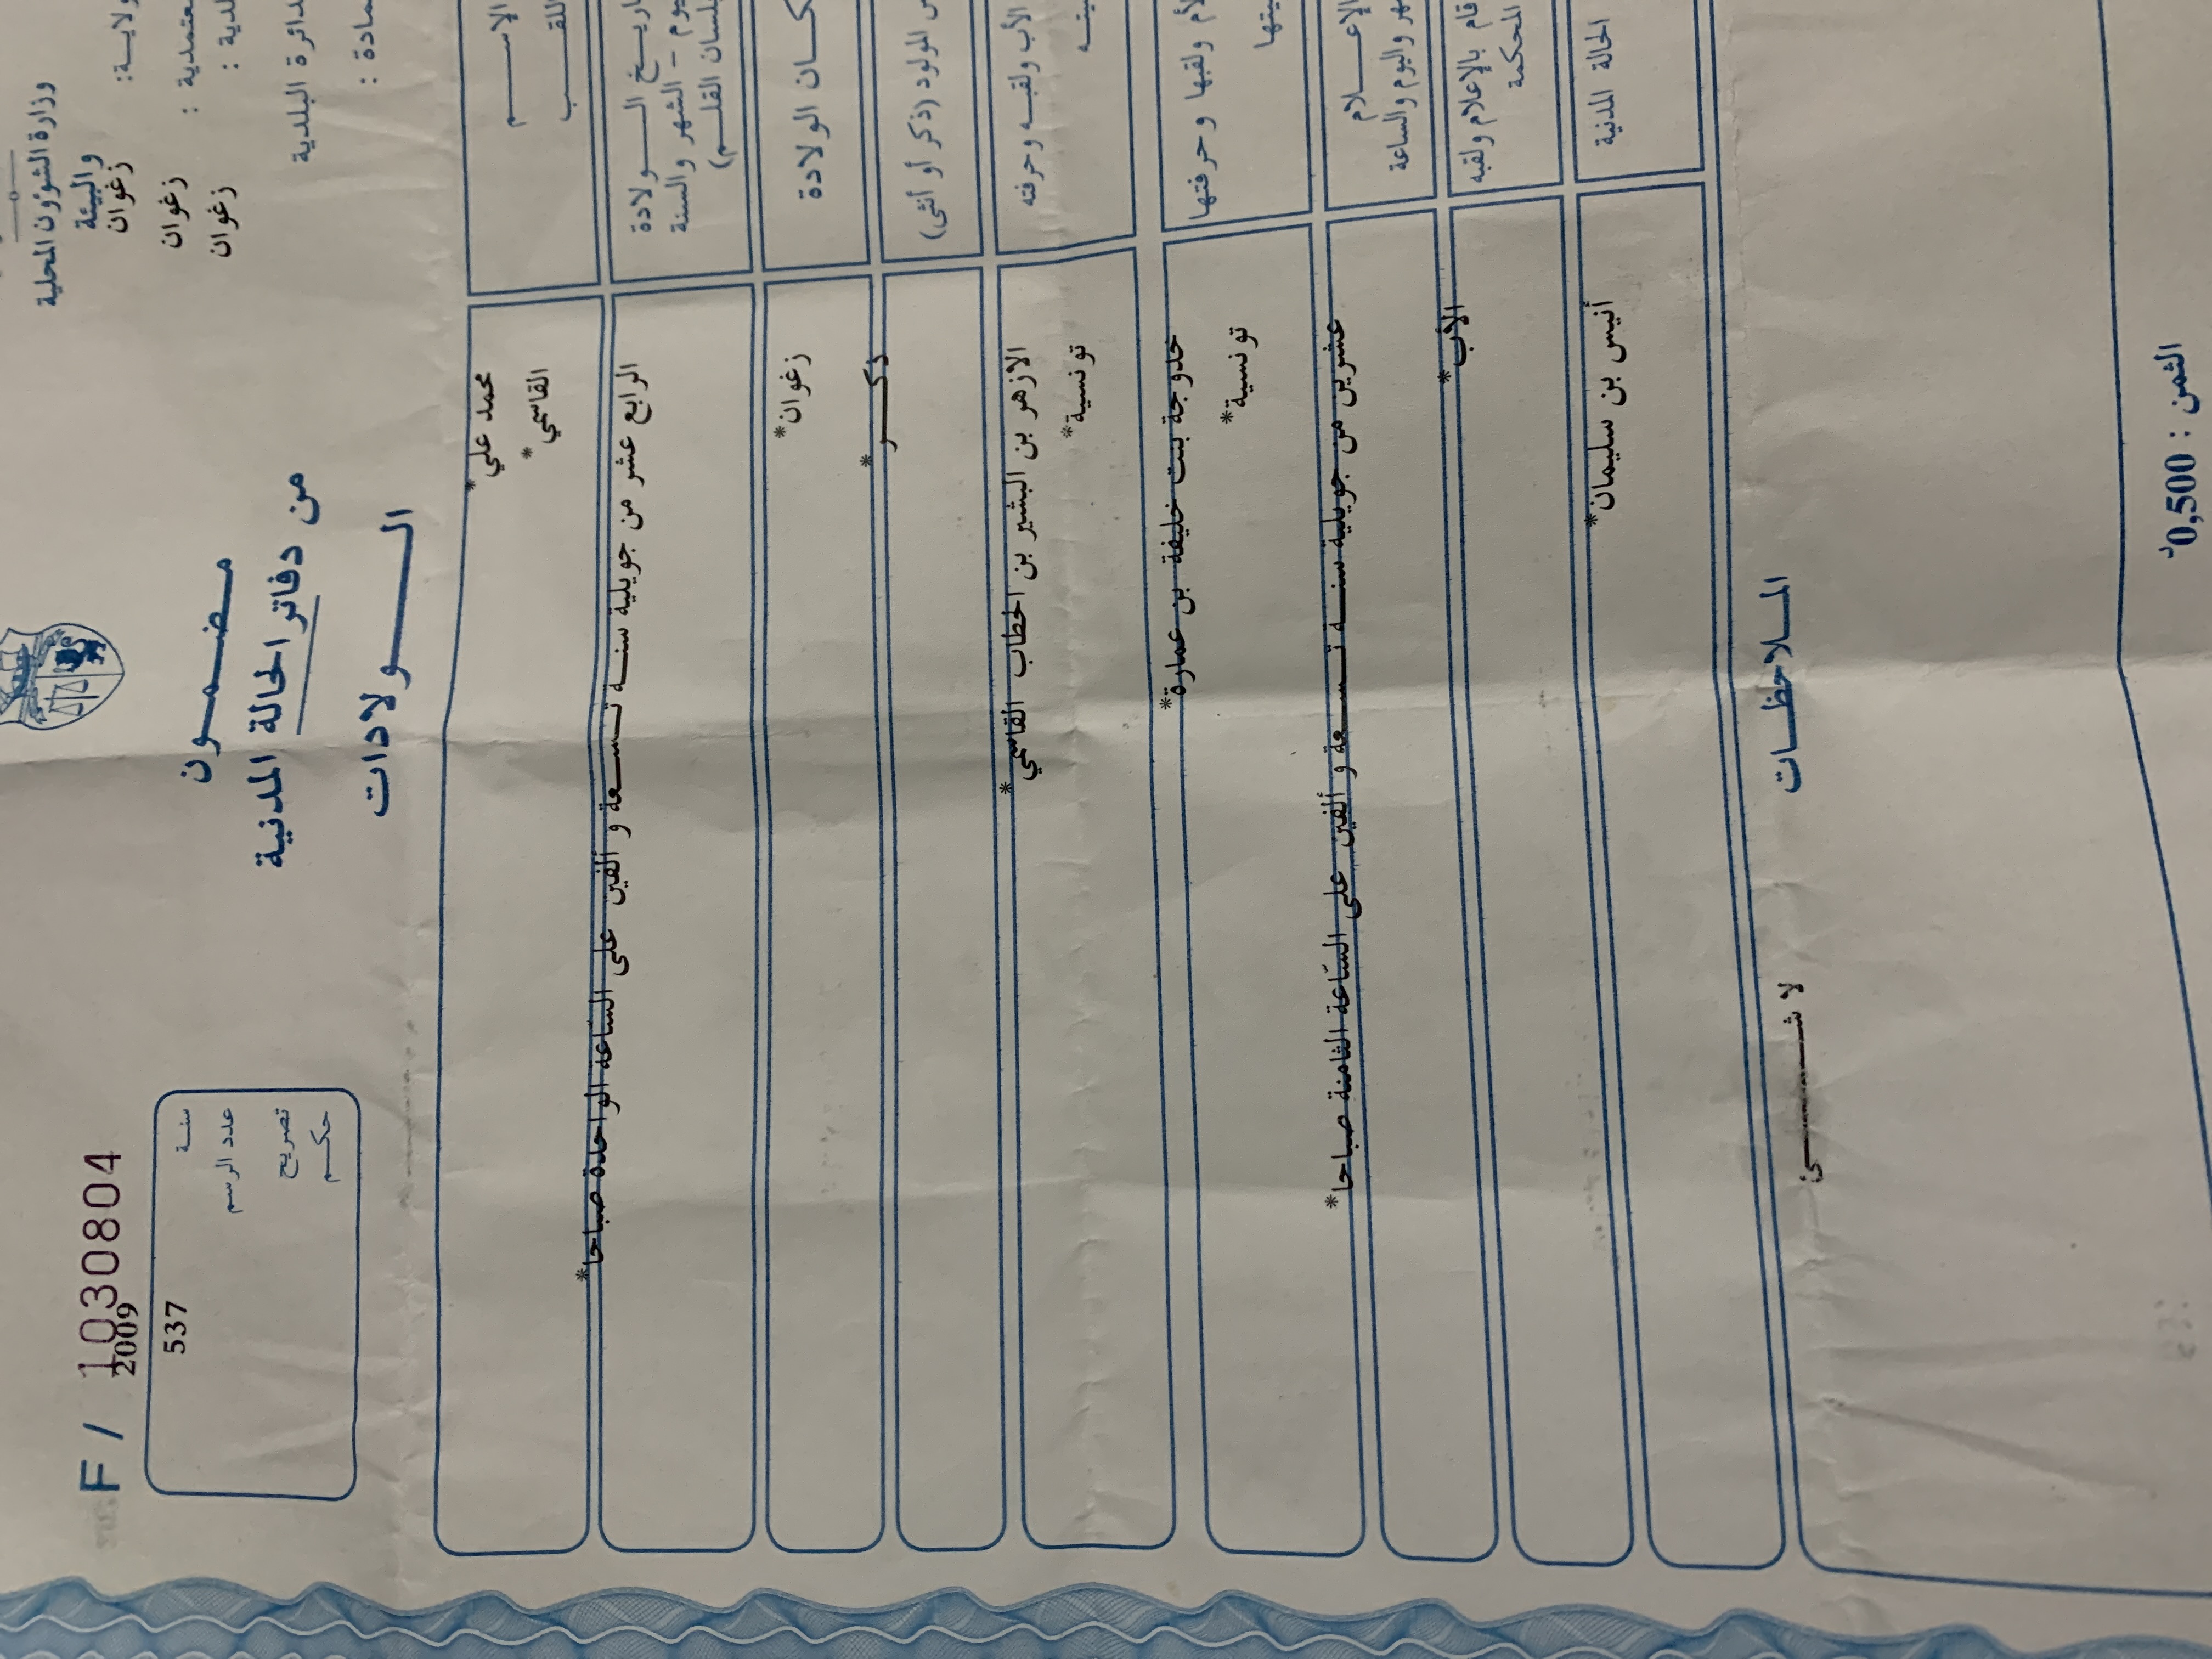 وزارة الشؤون المحلية
والبيئة
زغوان
زغوان
زغوان
الدائرة البلدية
F / 1030804
2009
537
سنة
عدد الرسم
تصريح
حكم
مضمون
من دفاتر الحالة المدنية
الولادات
الإسم
اللقب
محمد علي*
القاسمي*
تاريخ الولادة
اليوم - الشهر والسنة
بلسان القلم)
الرابع عشر من جويلية سنة تسعة و ألفين على الساعة الواحدة صباحا*
مكان الولادة
زغوان*
المولود (ذكر أو أنثى)
ذكر*
الأب ولقبه وحرفته
الازهر بن البشير بن الحطاب القاسمي*
تونسية*
الأم ولقبها وحرفتها
خدوجة بنت خليفة بن عمارة*
تونسية*
الإعلام
الشهر واليوم والساعة
عشرين من جويلية سنة تسعة و ألفين على الساعة الثامنة صباحا*
قام بالإعلام ولقبه
المحكمة
الأب*
الحالة المدنية
أنيس بن سليمان*
الملاحظات
لا شئ
الثمن : 0,500د